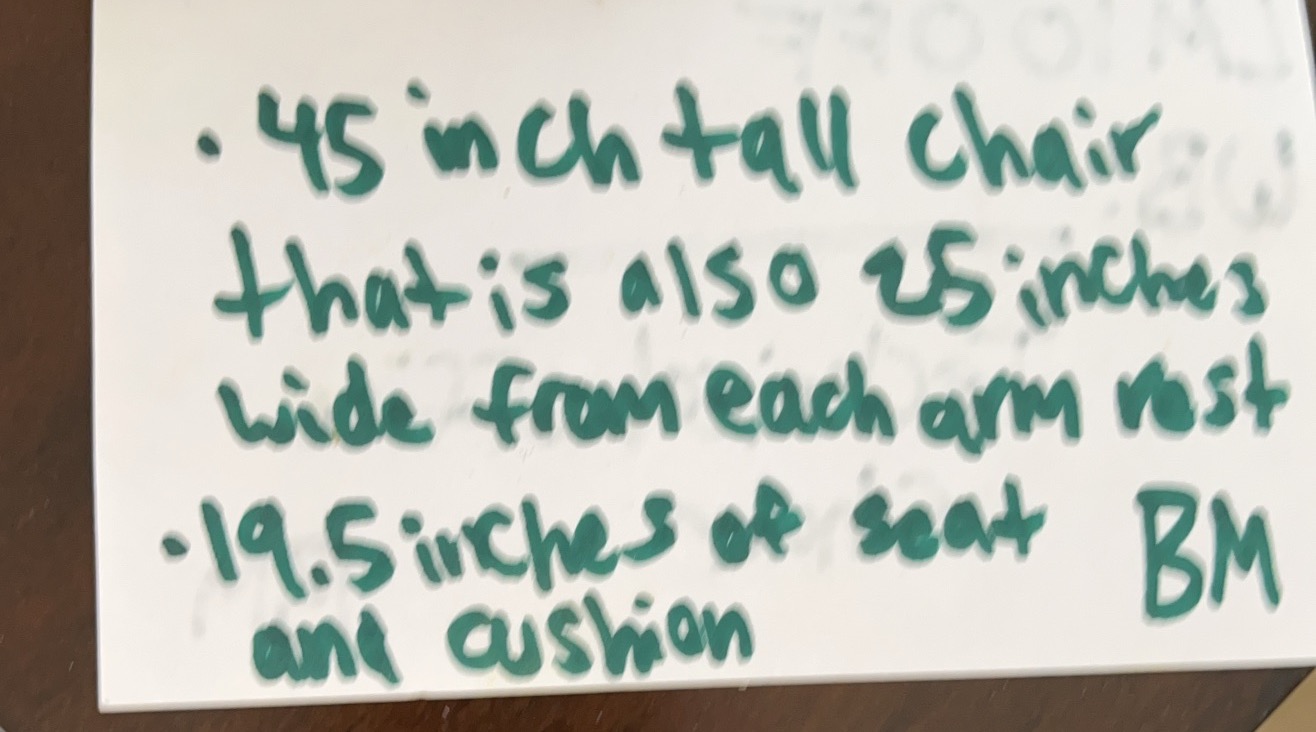 · 45 inch tall chair
that is also 25 inches
wide from each arm rest
· 19.5 inches of seat BM
and cushion